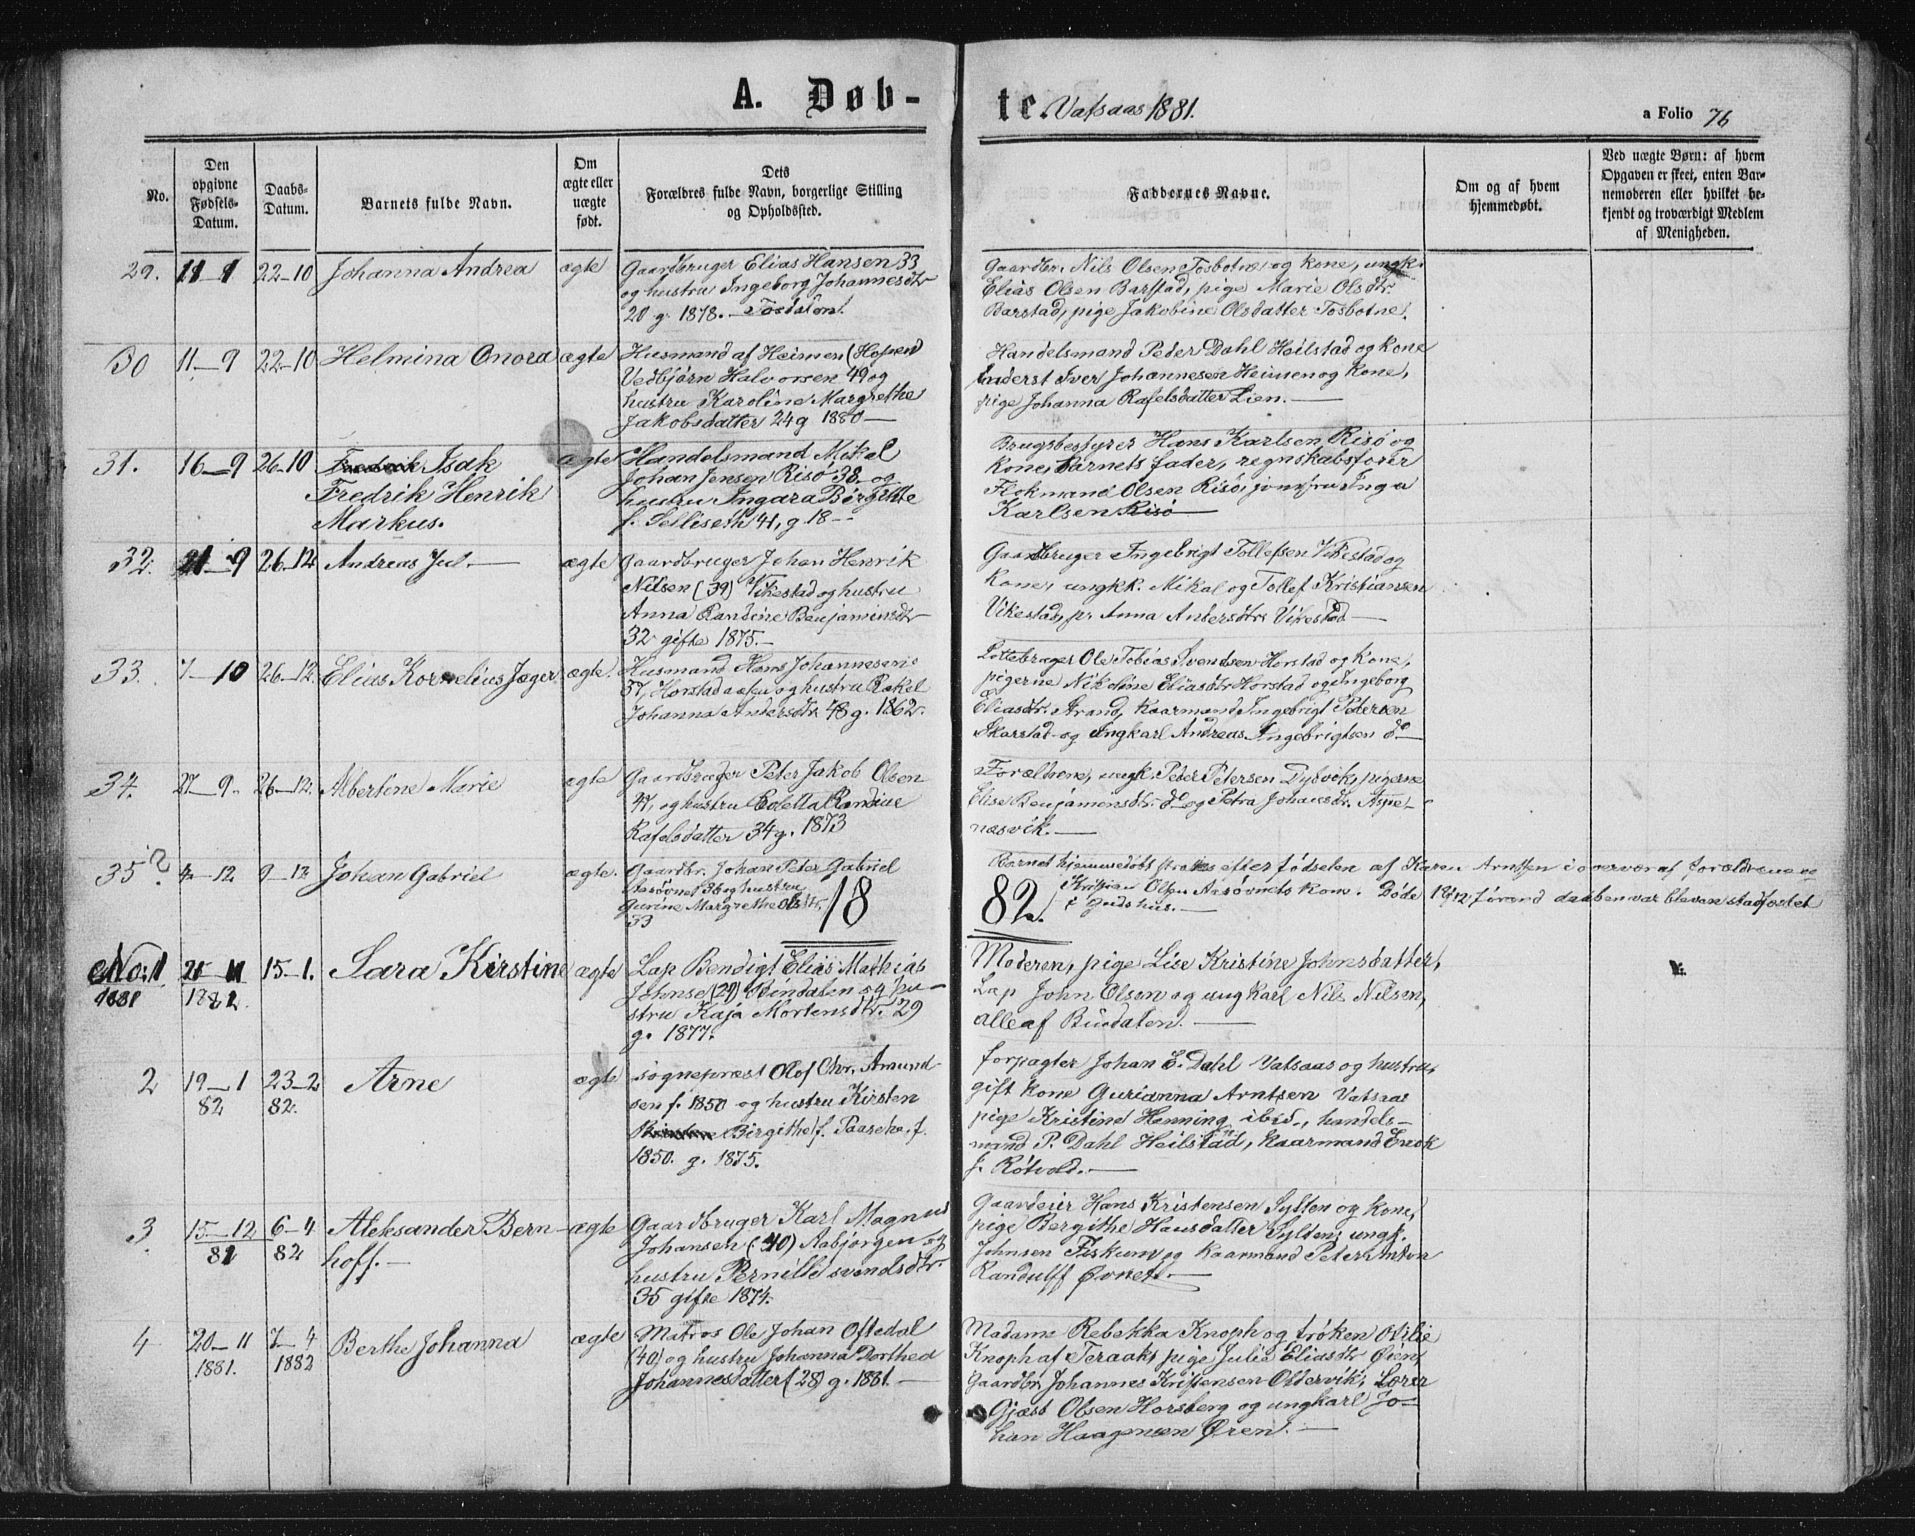 A. Døb-
te. Vatsaas 1881.
a Folio 76
No.
Den opgivne Fødsels-Datum.
Daabs-Datum.
Barnets fulde Navn.
Om ægte eller uægte født.
Dets Forældres fulde Navn, borgerlige Stilling og Opholdssted.
Faddernes Navne.
Om og af hvem hjemmedøbt.
Ved uægte Børn: af hvem Opgaven er skeet, enten Barnemoderen eller hvilket bekjendt og troværdigt Medlem af Menigheden.
29. 22-10 Johanna Andrea ægte
Gaardbruger Elias Hansen 33
og hustru Ingeborg Johannesdtr
20 g. 1878. Tosdalen.
Gaardbr. Nils Olsen Tosbotne og kone, ungk.
Elias Olsen Barstad, pige Marie Olsdtr.
Barstad, pige Jakobine Olsdatter Tosbotne.
30 11-9 22-10 Helmina Onora ægte
Husmand af Heimen (Hopen
Vedbjørn Halvorsen 49 og
hustru Karoline Margrethe
Jakobsdatter 24 g 1880
Handelsmand Peder Dahl Heilstad og kone
Inderst Iver Johannesen Heimen og kone,
pige Johanna Rafelsdatter Lien.
31. 16-9 26-10 Isak
Fredrik Henrik
Markus.
ægte
Handelsmand Mikal
Johan Jensen Risø 38 og
hustru Ingara Birgitte
f. Sellseth 41, g. 18--
Brugsbestyrer Hans Karlsen Risø og
kone, Barnets fader, regnskabsfører
Flokmand Olsen Risø, jomfru Inga
Karlsen Risø
32. 21-9 26-12 Andreas Jul. ægte
Gaardbruger Johan Henrik
Nilsen (39) Vikestad og hustru
Anna Randine Benjaminsdtr
32 gifte 1875.
Gaardbruger Ingebrigt Tollefsen Vikestad og
kone, ungkk. Mikal og Tollef Kristiansen
Vikestad, p. Anna Andersdtr Vikestad
33. 7-10 26-12. Elias Kornelius Jæger. ægte.
Husmand Hans Johannesen
57, Horstad og hustru Rakel
Johanna Andersdtr 48 g. 1862.
Lottebruger Ole Tobias Svendsen Horstad og kone,
pigerne Nikoline Eliasdtr Horstad og Ingeborg
Eliasdtr. Strand, Kaarmand Ingebrigt Petersen
Skarstad og Ungkarl Andreas Ingebrigtsen do
34. 27-9. 26-12. Albertine Marie ægte
Gaardbruger Peter Jakob Olsen
47, og hustru Edletta Randine
Rafelsdatter 34 g. 1873
Forældrene, ungk. Peter Petersen Dybvik, pigerne
Elise Benjamensdtr. do og Petra Johansdtr. Aspe-
næsvik.
35 4-12 9-12 Johan Gabriel ægte.
Gaardbr. Johan Peter Gabriel
36 og hustru
Gurine Margrethe Olsdtr.
33
Barnet hjemmedøbt strax efter fødselen af Karen Arntsen i overvær af forældrene og
Kristian Olsen Aarsøvnets kone. Døde før end daaben var bleven stadfæstet
i Guds hus.
18
82.
No: 1
1881
1882. 15-1. Sara Kirstine ægte
Lap Bendigt Elias Mathias
Johnse (29) Bindalen og hu-
stru Kaja Mortensdtr. 29
g. 1877.
Moderen, pige Lise Kristine Johnsdatter,
Lap John Olsen og ungkarl Nils Nilsen,
alle af Bindalen.
2 19-1 82 23-2 82. Arne ægte
sognepræst Olof Chr. Amund-
sen f. 1850 og hustru Kirsten
Birgithe f. f.
1850. g. 1875.
forpagter Johan E. Dahl Vatsaas og hustru,
gift kone Gurianna Arntsen Vatsaas
pige Kristine Henning ibid., handels-
mand P. Dahl Heilstad, Kaarmand Enok
J. Røtvold.
3. 15-12 81 6-4 82 Aleksander Bern-
hoff.
ægte
Gaardbruger Karl Magnus
Johansen (40) Aabjørgen og
hustru Pernille Svendsdtr.
35 gifte 1874.
Gaardeier Hans Kristensen Sylten og kone,
pige Bergithe Hansdatter Sylten, ungk.
Johnsen Fiskum og Kaarmand Peter Anton
Randulff Øvnetl.
4 20-11 1881. 7-4 1882 Berthe Johanna ægte
Matros Ole Johan Oftedal
(40) og hustru Johanna Dorthea
Johannesdatter (28) g. 1881.
Madame Rebekka Knoph og frøken Otilie
Knoph af Teraak, pige Julie Eliasdtr Øien,
Gaardbr. Johannes Kristensen Oldervik, Lærer
Gjæst Olsen Horsberg og ungkarl Jo-
han Haagensen Øren.